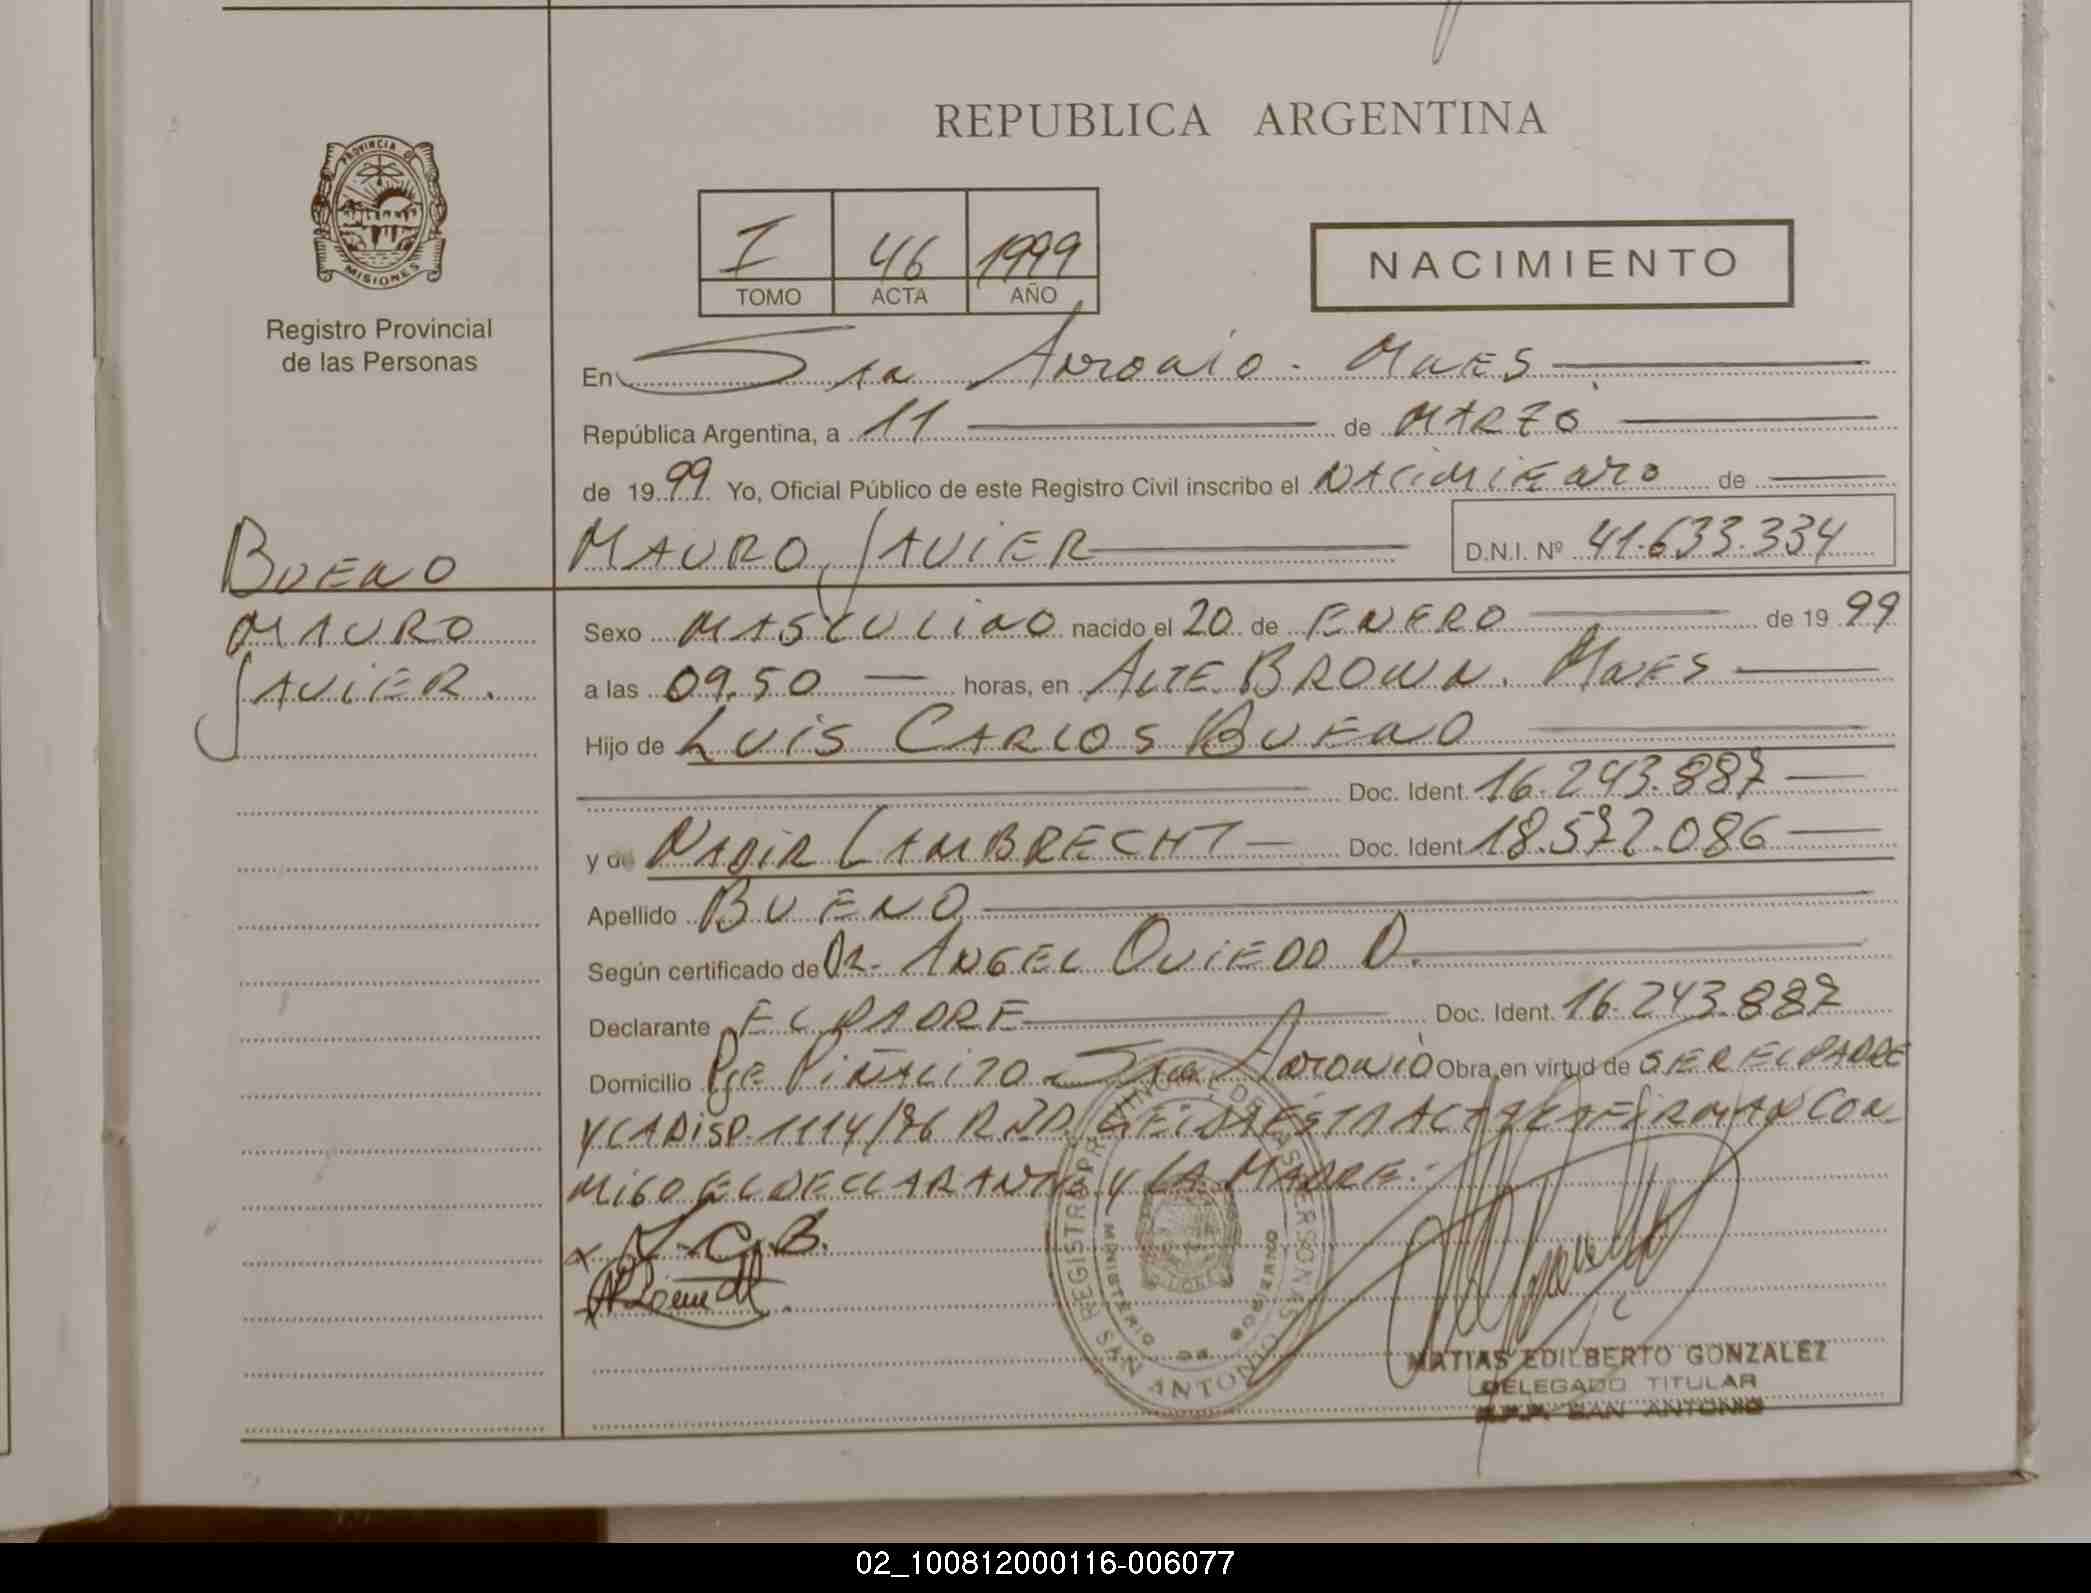 REPUBLICA ARGENTINA
PROVINCIA DE
MISIONES
Registro Provincial
de las Personas
I 46 1999
TOMO ACTA AÑO
NACIMIENTO
En San Antonio - Mnes
República Argentina, a 11 de MARZO
de 1999 Yo, Oficial Público de este Registro Civil inscribo el NACIMIENTO de
MAURO JAVIER D.N.I. Nº 41.633.334
BUENO
MAURO
JAVIER.
Sexo MASCULINO nacido el 20 de ENERO de 1999
a las 09.50 horas, en ALTE BROWN. MNES
Hijo de LUIS CARLOS BUENO
Doc. Ident. 16.243.887
y de NADIR LAMBRECHT Doc. Ident 18.572.086
Apellido BUENO
Según certificado de Dr. ANGEL OVIEDO D.
Declarante EL PADRE Doc. Ident. 16.243.887
Domicilio Pje PIÑALITO San Antonio Obra en virtud de SER EL PADRE
Y LA DISP. 1114/86 R.N.P. LEIDA ESTA ACTA LA FIRMAN CON
MIGO EL DECLARANTE Y LA MADRE.-
x L-C.B.
REGISTRO PROVINCIAL DE LAS PERSONAS
SAN ANTONIO
MINISTERIO DE GOBIERNO
MATIAS EDILBERTO GONZALEZ
DELEGADO TITULAR
R.P.P. SAN ANTONIO
02_100812000116-006077